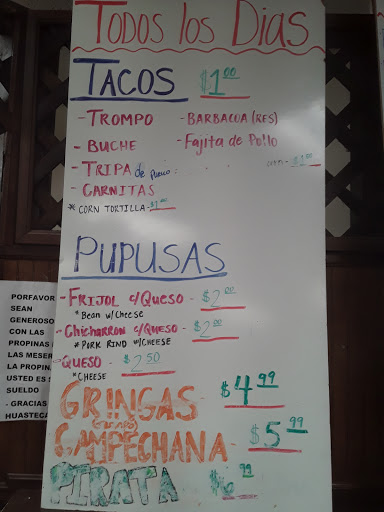 TODOS LOS DIAS
TACOS $1.00
- TROMPO - BARBACOA (RES)
- BUCHE - Fajita de Pollo
- TRIPA de Puerco $1.00
- CARNITAS
* CORN TORTILLA - $1.00
PUPUSAS
- FRIJOL c/QUESO - $2.00
* Bean w/Cheese
- Chicharron c/QUESO - $2.00
* PORK RIND w/CHEESE
- QUESO - $2.50
* CHEESE
GRINGAS - $4.99
CAMPECHANA - $5.99
PIRATA $6.99
PORFAVOR
SEAN
GENEROSO
CON LAS
PROPINAS
LAS MESER
LA PROPINA
USTED ES S
SUELDO
- GRACIAS
HUASTECA